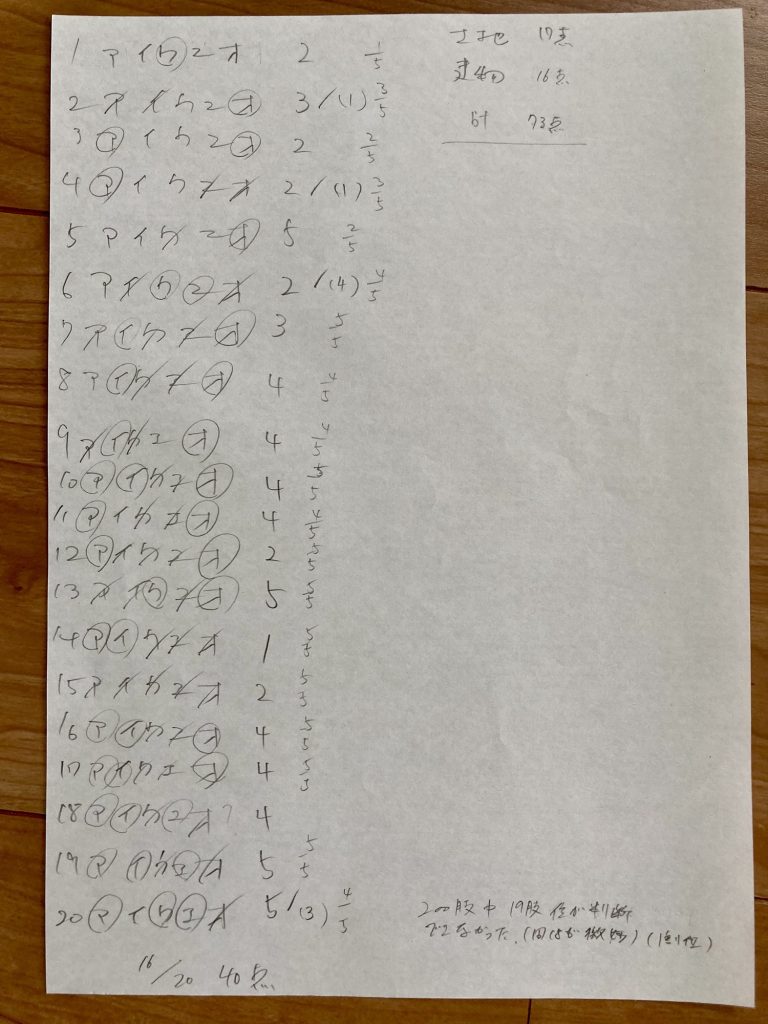 1 アイウエオ 2 1/5
2 アイウエオ 3/(1) 3/5
3 アイウエオ 2 2/5
4 アイウエオ 2/(1) 3/5
5 アイウエオ 5 2/5
6 アイウエオ 2/(4) 4/5
7 アイウエオ 3 5/5
8 アイウエオ 4 4/5
9 アイウエオ 4 4/5
10 アイウエオ 4
11 アイウエオ 4 4/5
12 アイウエオ 2 5/5
13 アイウエオ 5 5/5
14 アイウエオ 1 5/5
15 アイウエオ 2 5/5
16 アイウエオ 4 5/5
17 アイウエオ 4 5/5
18 アイウエオ? 4
19 アイウエオ 5 5/5
20 アイウエオ 5/(3) 4/5
16/20 40点
土地 17点
建物 16点
計 73点
200肢中 19肢 位が判断
できなかった。